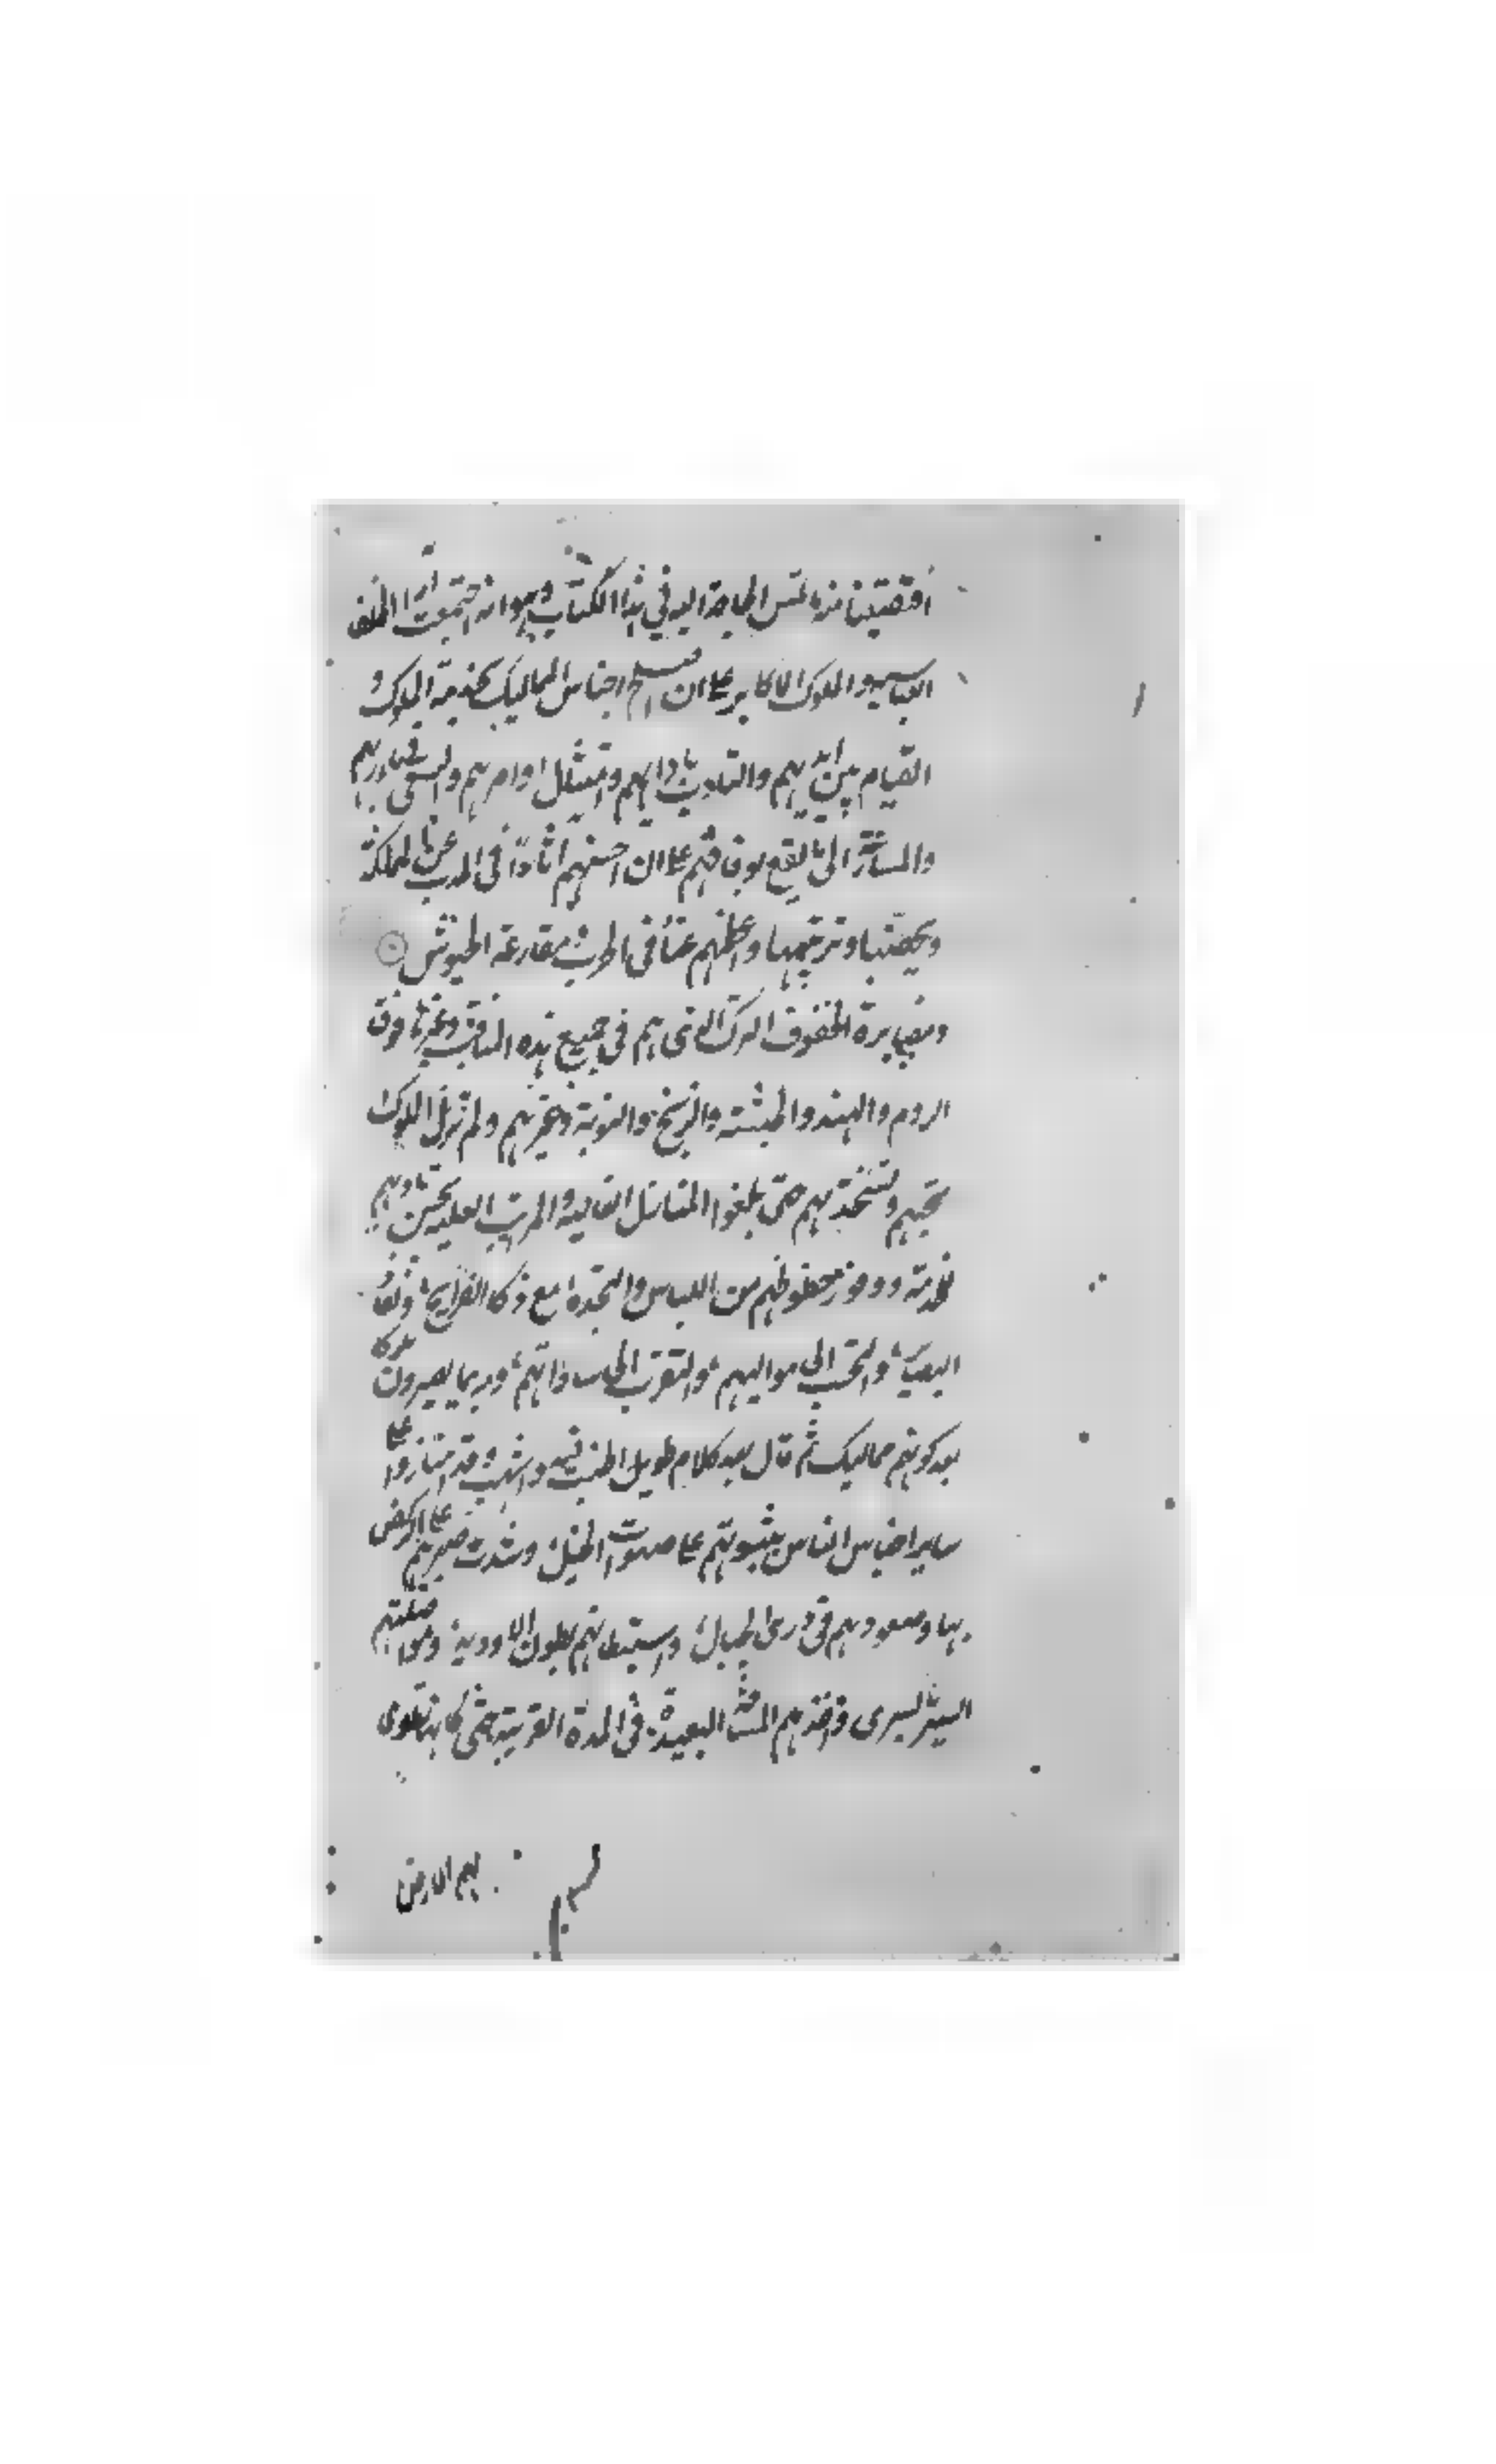 اقتصينا منه ما تمس الحاجة اليه في هذا الكتاب وهو انه اجتمعت آراء الخلفا
العباسيه والملوك الاكابر على ان اصلح اجناس المماليك بخدمة الملوك و
القيام بين ايديهم والتادب بادابهم وتمثيل اوامرهم والسعى في مآربهم
والمسارعة الى ما يقع بوفاقهم على ان احسنهم اثارا في الذب عن المملكة
ويحصنها وترتيبها واعظمهم عنأ في الحرب مقارعة الجيوش
ومصابرة الحفوف الترك الذى هم في جميع هذه المناقب وغيرها فوق
الروم والهند والحبشه والزنج والنوبة وغيرهم ولم تزل الملوك
تحبهم وتستخدمهم حتى بلغوا المنازل العاليه والمراتب العليه بحسن تادبهم
خدمة ووفور حظوظهم من اللباس والنجدة مع ذكا القرايح ونفاذ
البصيرة والتحبب الى مواليهم والتقرب الى ساداتهم وربما يصيرون ملوكا
بعد كونهم مماليك ثم قال بعد كلام طويل اطنب فيه واسهب وقد امتازوا على
ساير اجناس الناس بثبوتهم على صهوات الخيل وشدت صبرهم على الركض
بها وصعودهم في ذرى الجبال واستبطانهم بطون الاودية ومواصلتهم
السير بالسرى واخذهم المسافة البعيدة في المدة القريبة حتى كانها تطوى
لهم الارض